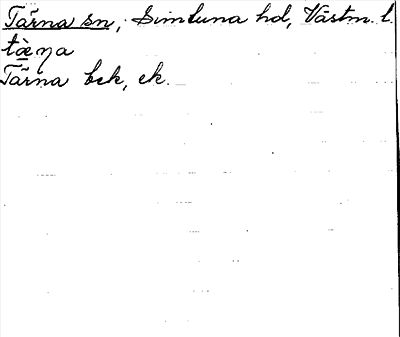 Tärna sn, Simtuna hd, Västm. l.
tæ̀ɳa
Tärna bck, ck.